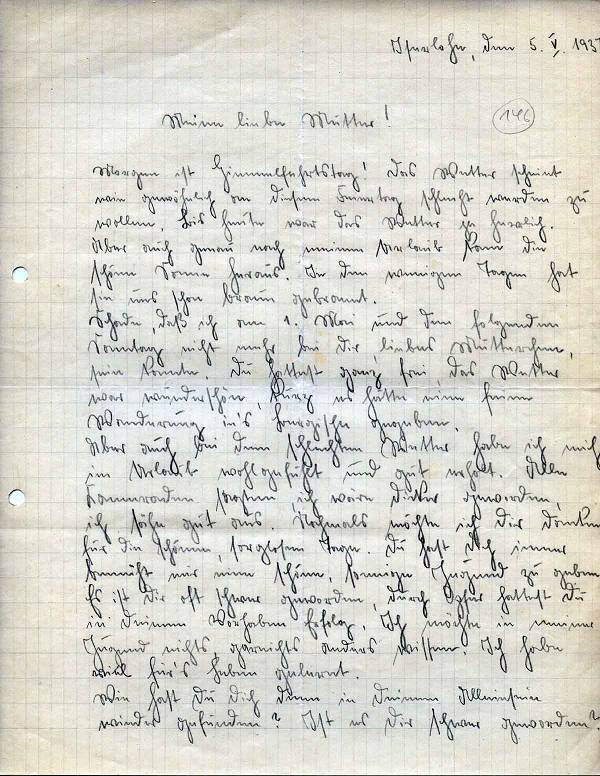 Iserlohn, den 5. V. 193
Meine liebe Mutter!
146
Morgen ist Himmelfahrtstag! Das Wetter scheint
wie gewöhnlich an diesem Feiertag schlecht werden zu
wollen. Bis heute war das Wetter ja herrlich.
Aber auch genau nach meinem Urlaub kam die
schöne Sonne heraus. In den wenigen Tagen hat
sie uns schon braun gebrannt.
Schade, daß ich am 1. Mai und den folgenden
Sonntag nicht mehr bei Dir, liebes Mütterchen,
sein konnte. Du hattest ganz frei, das Wetter
war wunderschön, kurz es hätte eine feine
Wanderung in's Bergische gegeben.
Aber auch bei dem schlechten Wetter habe ich mich
im Urlaub wohlgefühlt und gut erholt. Alle
Kameraden sagten, ich wäre dicker geworden,
ich sähe gut aus. Nochmals möchte ich Dir danken
für die schönen, sorglosen Tage. Du hast Dich immer
bemüht mir eine schöne, sonnige Jugend zu geben
Es ist Dir oft schwer geworden, durch Opfer hattest Du
in Deinem Vorhaben Erfolg. Ich möchte in meiner
Jugend nichts, garnichts anders wissen. Ich habe
viel für's Leben gelernt.
Wie hast Du Dich denn in Deinem Alleinsein
wieder gefunden? Ist es Dir schwer geworden?